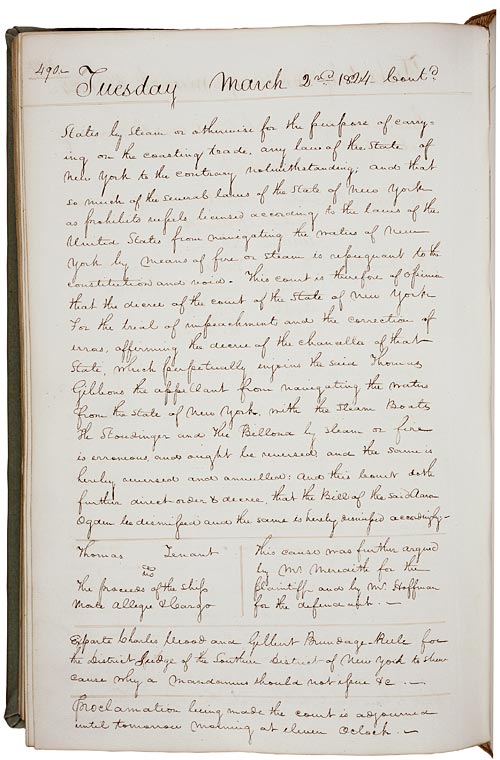 490.-
Tuesday March 2nd 1824 Cont'd
States by steam or otherwise for the purpose of carry=
ing on the coasting trade, any law of the State of
New York to the contrary notwithstanding; and that
so much of the several laws of the State of New York
as prohibits vessels licensed according to the laws of the
United States from navigating the waters of New
York by means of fire or steam is repugnant to the
constitution and void. This court is therefore of opinion
that the decree of the court of the State of New York
For the trial of impeachment and the correction of
errors, affirming the decree of the chancellor of that
State, which perpetually enjoins the said Thomas
Gibbons the appellant from navigating the waters
from the State of New York, with the Steam Boats
the Stoudinger and the Bellona by steam or fire
is erroneous and ought be reversed and the same is
hereby reversed and annulled: And this Court doth
further direct order & decree that the Bill of the said Aaron
Ogden be dismissed and the same is hereby dismissed accordingly.-
Thomas Tenant
vs
The proceeds of the Ship
Mare Allegre & Cargo
This cause was further argued
by Mr. Meredith for the
plaintiff and by Mr. Hoffman
for the defendant. -
Exparte Charles Wood and Gilbert Brundage-Rule for
the District Judge of the Southern District of New York to shew
cause why a Mandamus should not issue &c. -
Proclamation being made the court is adjourned
until tomorrow morning at eleven Oclock. -